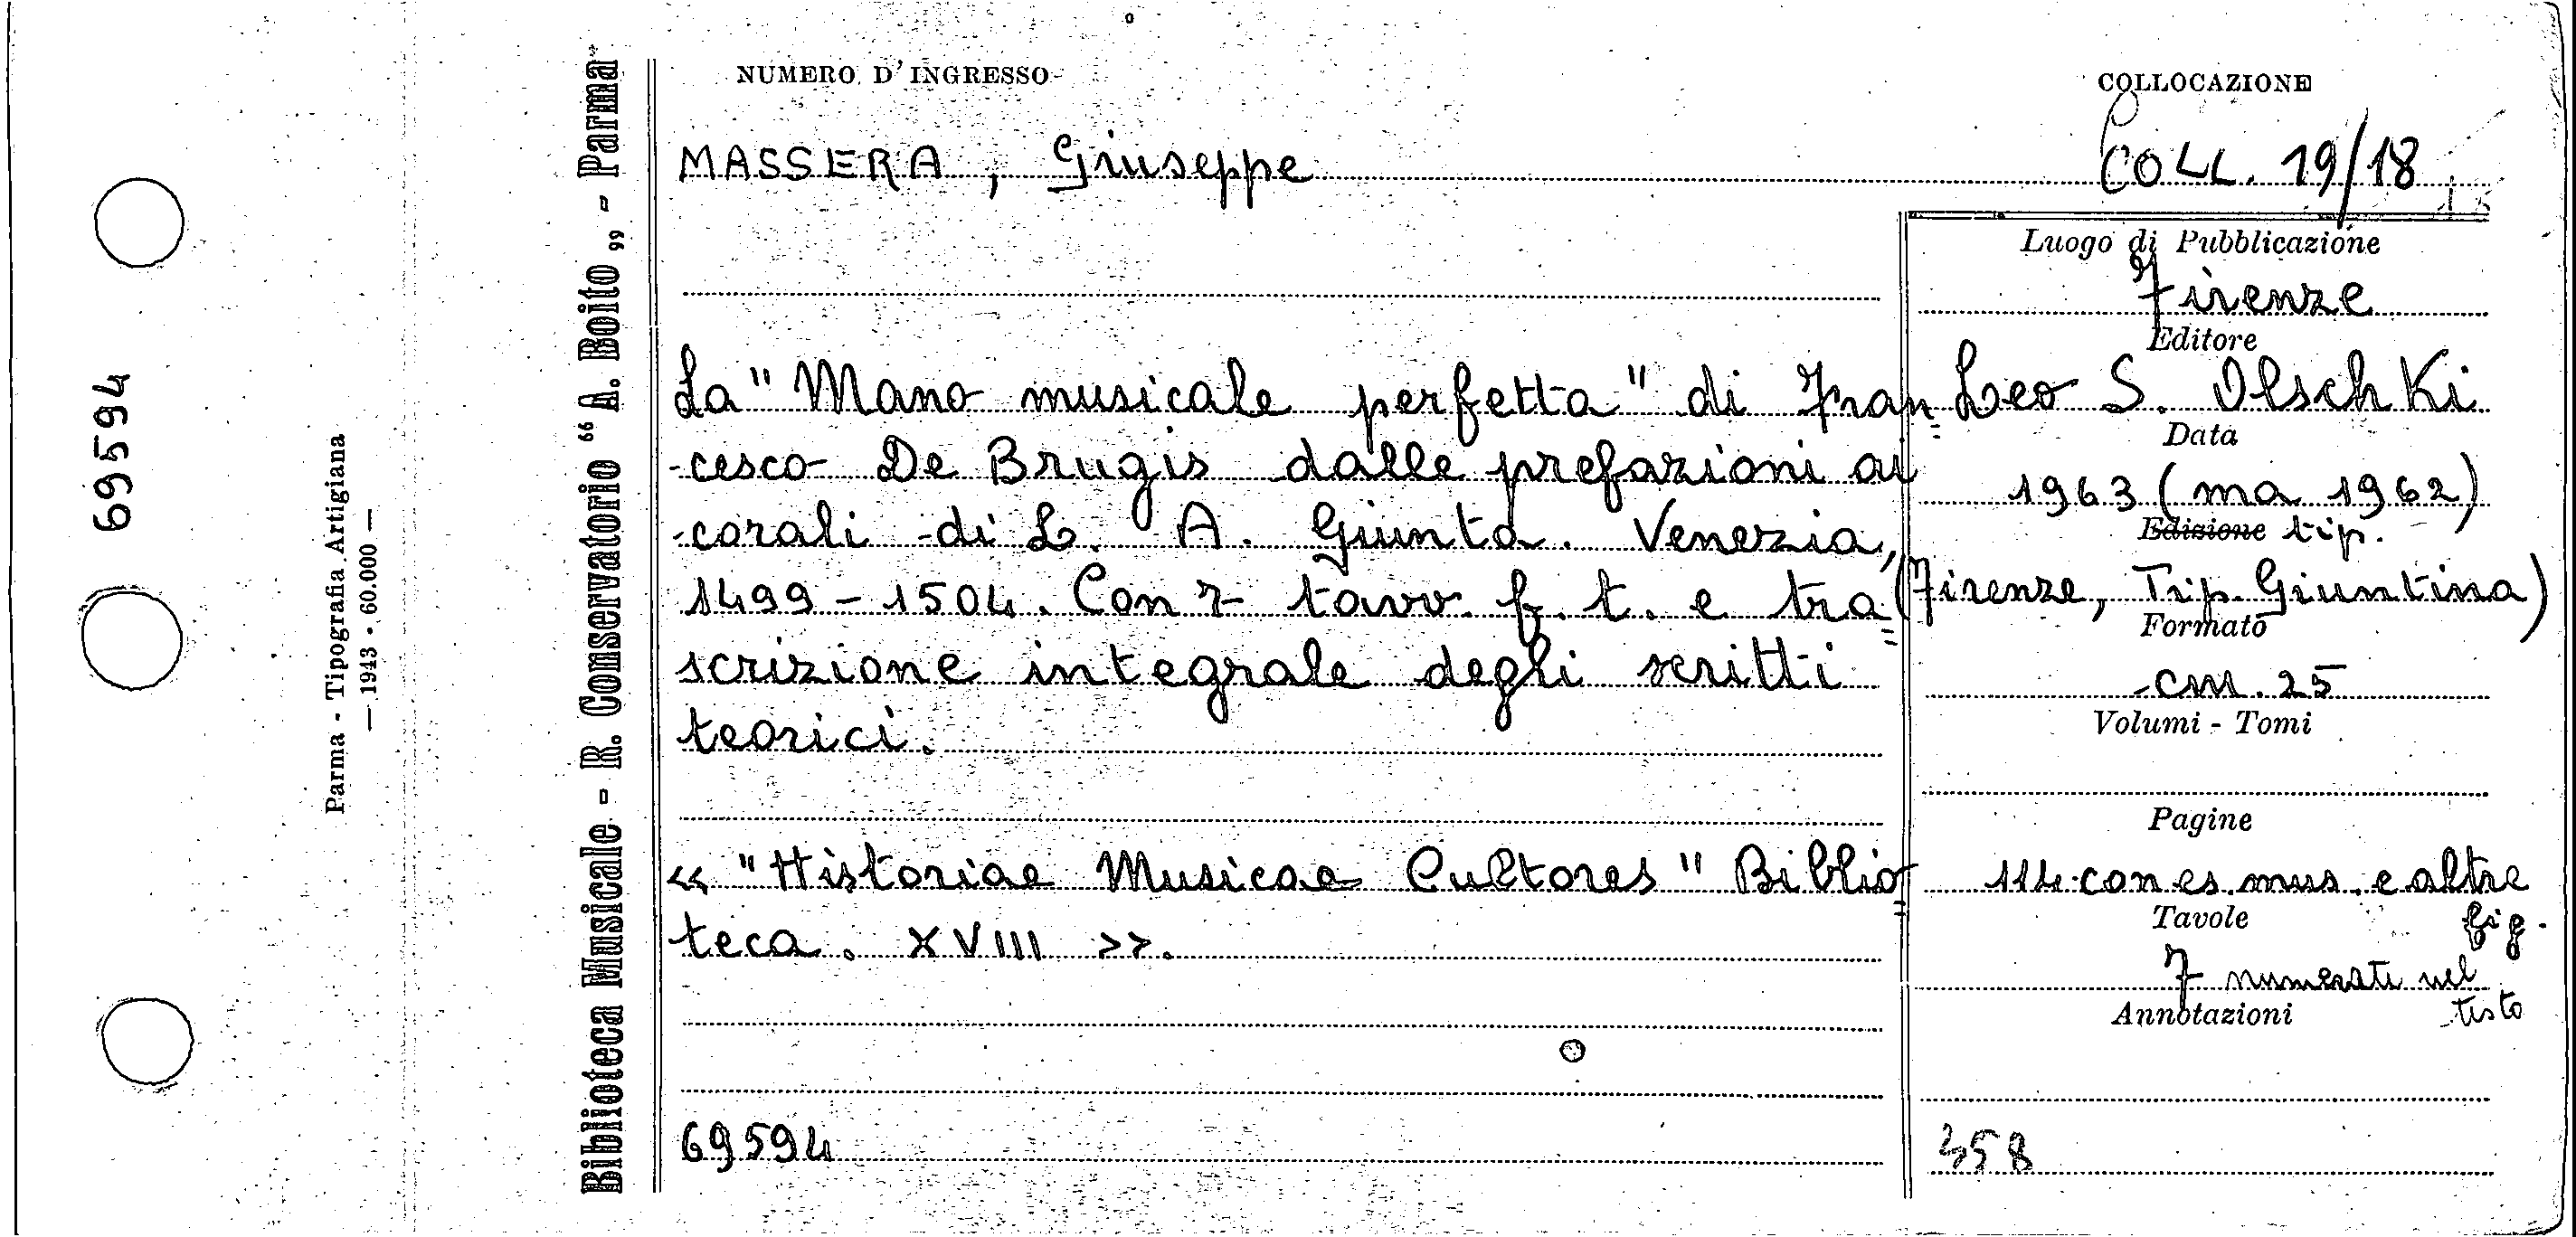 69594
Parma - Tipografia Artigiana
— 1943 - 60.000 —
Biblioteca Musicale - R. Conservatorio “ A. Boito „ - Parma
NUMERO D'INGRESSO
COLLOCAZIONE
MASSERA, Giuseppe
COLL. 19/18
Luogo di Pubblicazione
Firenze
Editore
Leo S. Olschki
Data
1963 (ma 1962)
Edizione tip.
(Firenze, Tip. Giuntina)
Formato
cm. 25
Volumi - Tomi
Pagine
114 con es. mus. e altre
fig.
Tavole
7 numerate nel
testo
Annotazioni
358
La "Mano musicale perfetta" di Fran=
cesco De Brugis dalle prefazioni ai
corali di L. A. Giunta. Venezia,
1499 - 1504. Con 7 tavv. f. t. e tra=
scrizione integrale degli scritti
teorici.
<< "Historiae Musicae Cultores" Biblio=
teca. XVIII >>.
69594